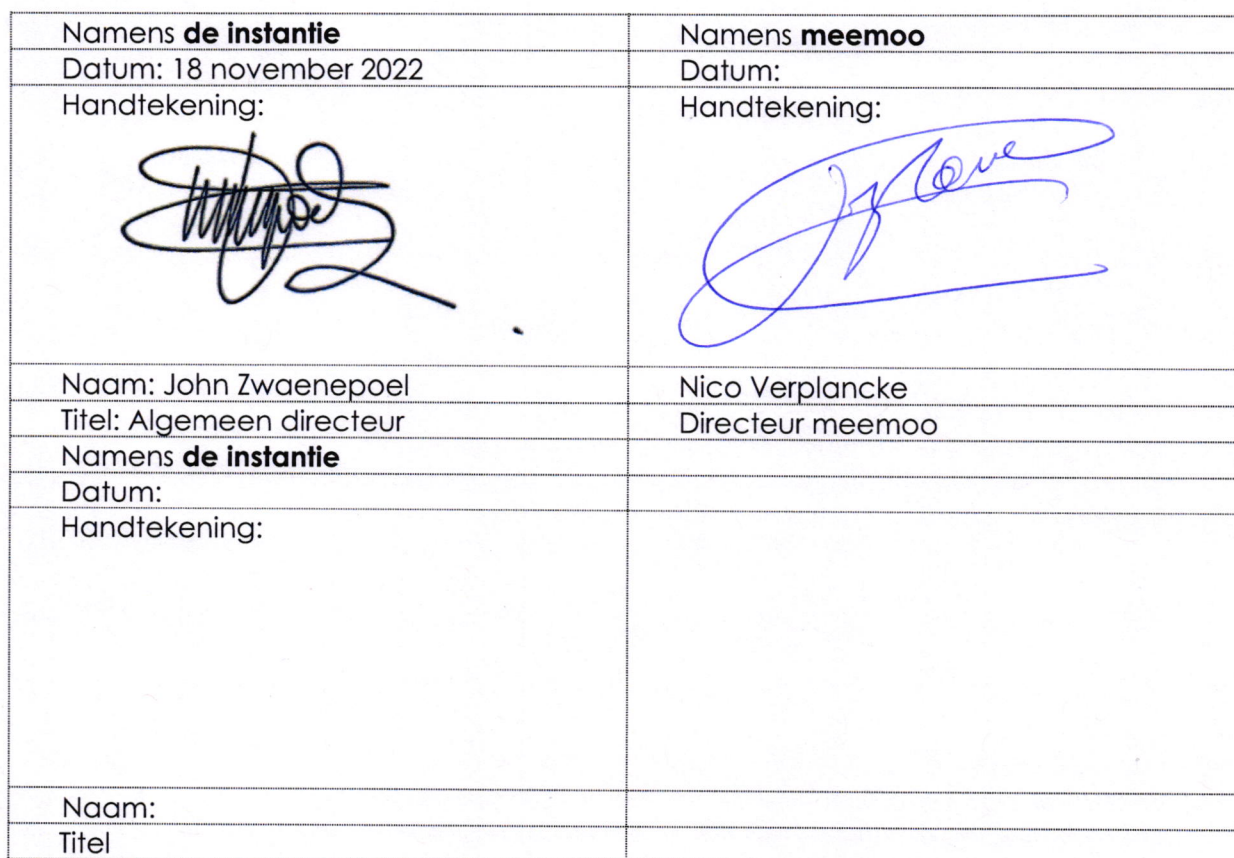 Namens de instantie
Namens meemoo
Datum: 18 november 2022
Datum:
Handtekening:
Handtekening:
Naam: John Zwaenepoel
Nico Verplancke
Titel: Algemeen directeur
Directeur meemoo
Namens de instantie
Datum:
Handtekening:
Naam:
Titel